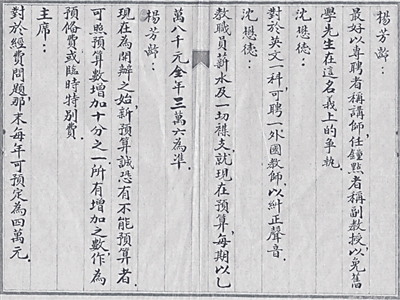 楊芳齡：
最好以專聘者稱講師，任鐘點者稱副教授，以免舊
學先生在這名義上的爭執。
沈懋德：
對於英文一科可聘一外國教師以糾正聲音。
沈懋德：
教職員薪水及一切襍支就現在預算，每期以乙
萬八千元全年三萬六為準。
楊芳齡：
現在為開辦之始，新預算誠恐有不能預算者，
可照預算數增加十分之一，所有增加之數作為
預備費或臨時特別費。
主席：
對於經費問題，那末每年可預定為四萬元。